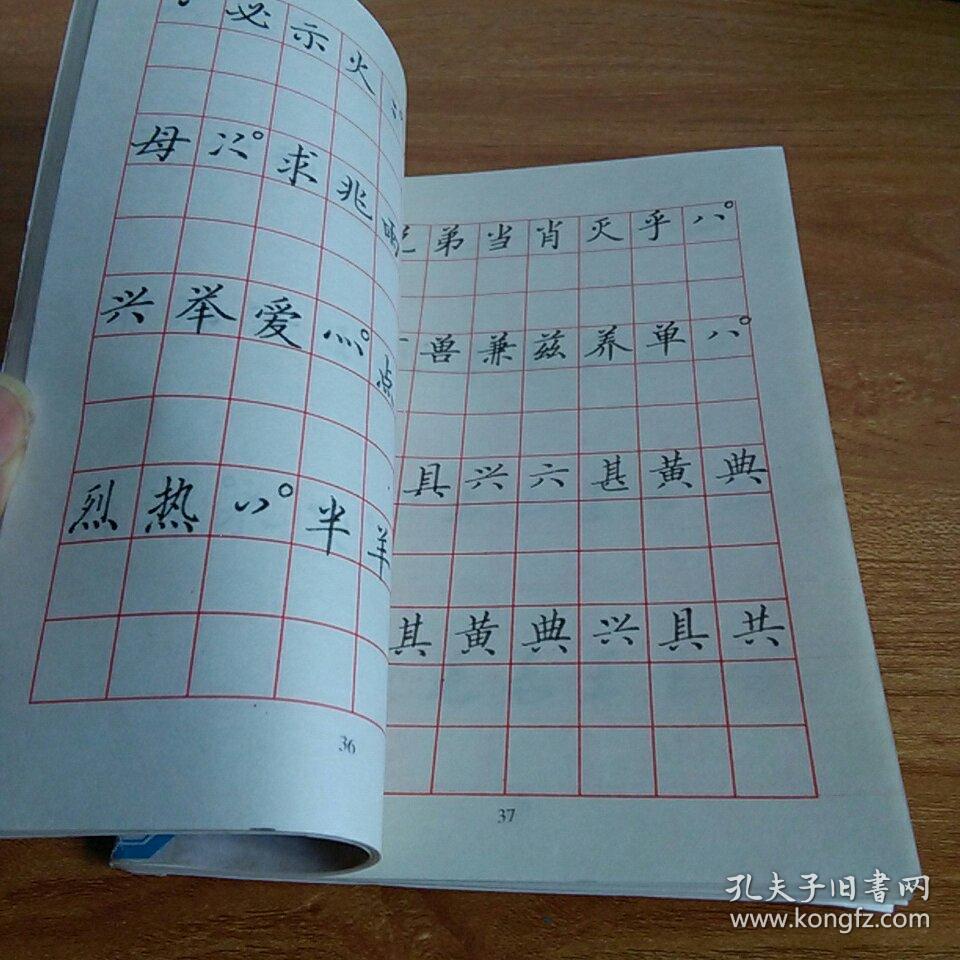 必示火
母 求兆
兴举爱 点
烈热 半羊
36
弟当肖灭乎
兽兼兹养单
具兴六甚黄典
其黄典兴具共
37
孔夫子旧書网
www.kongfz.com